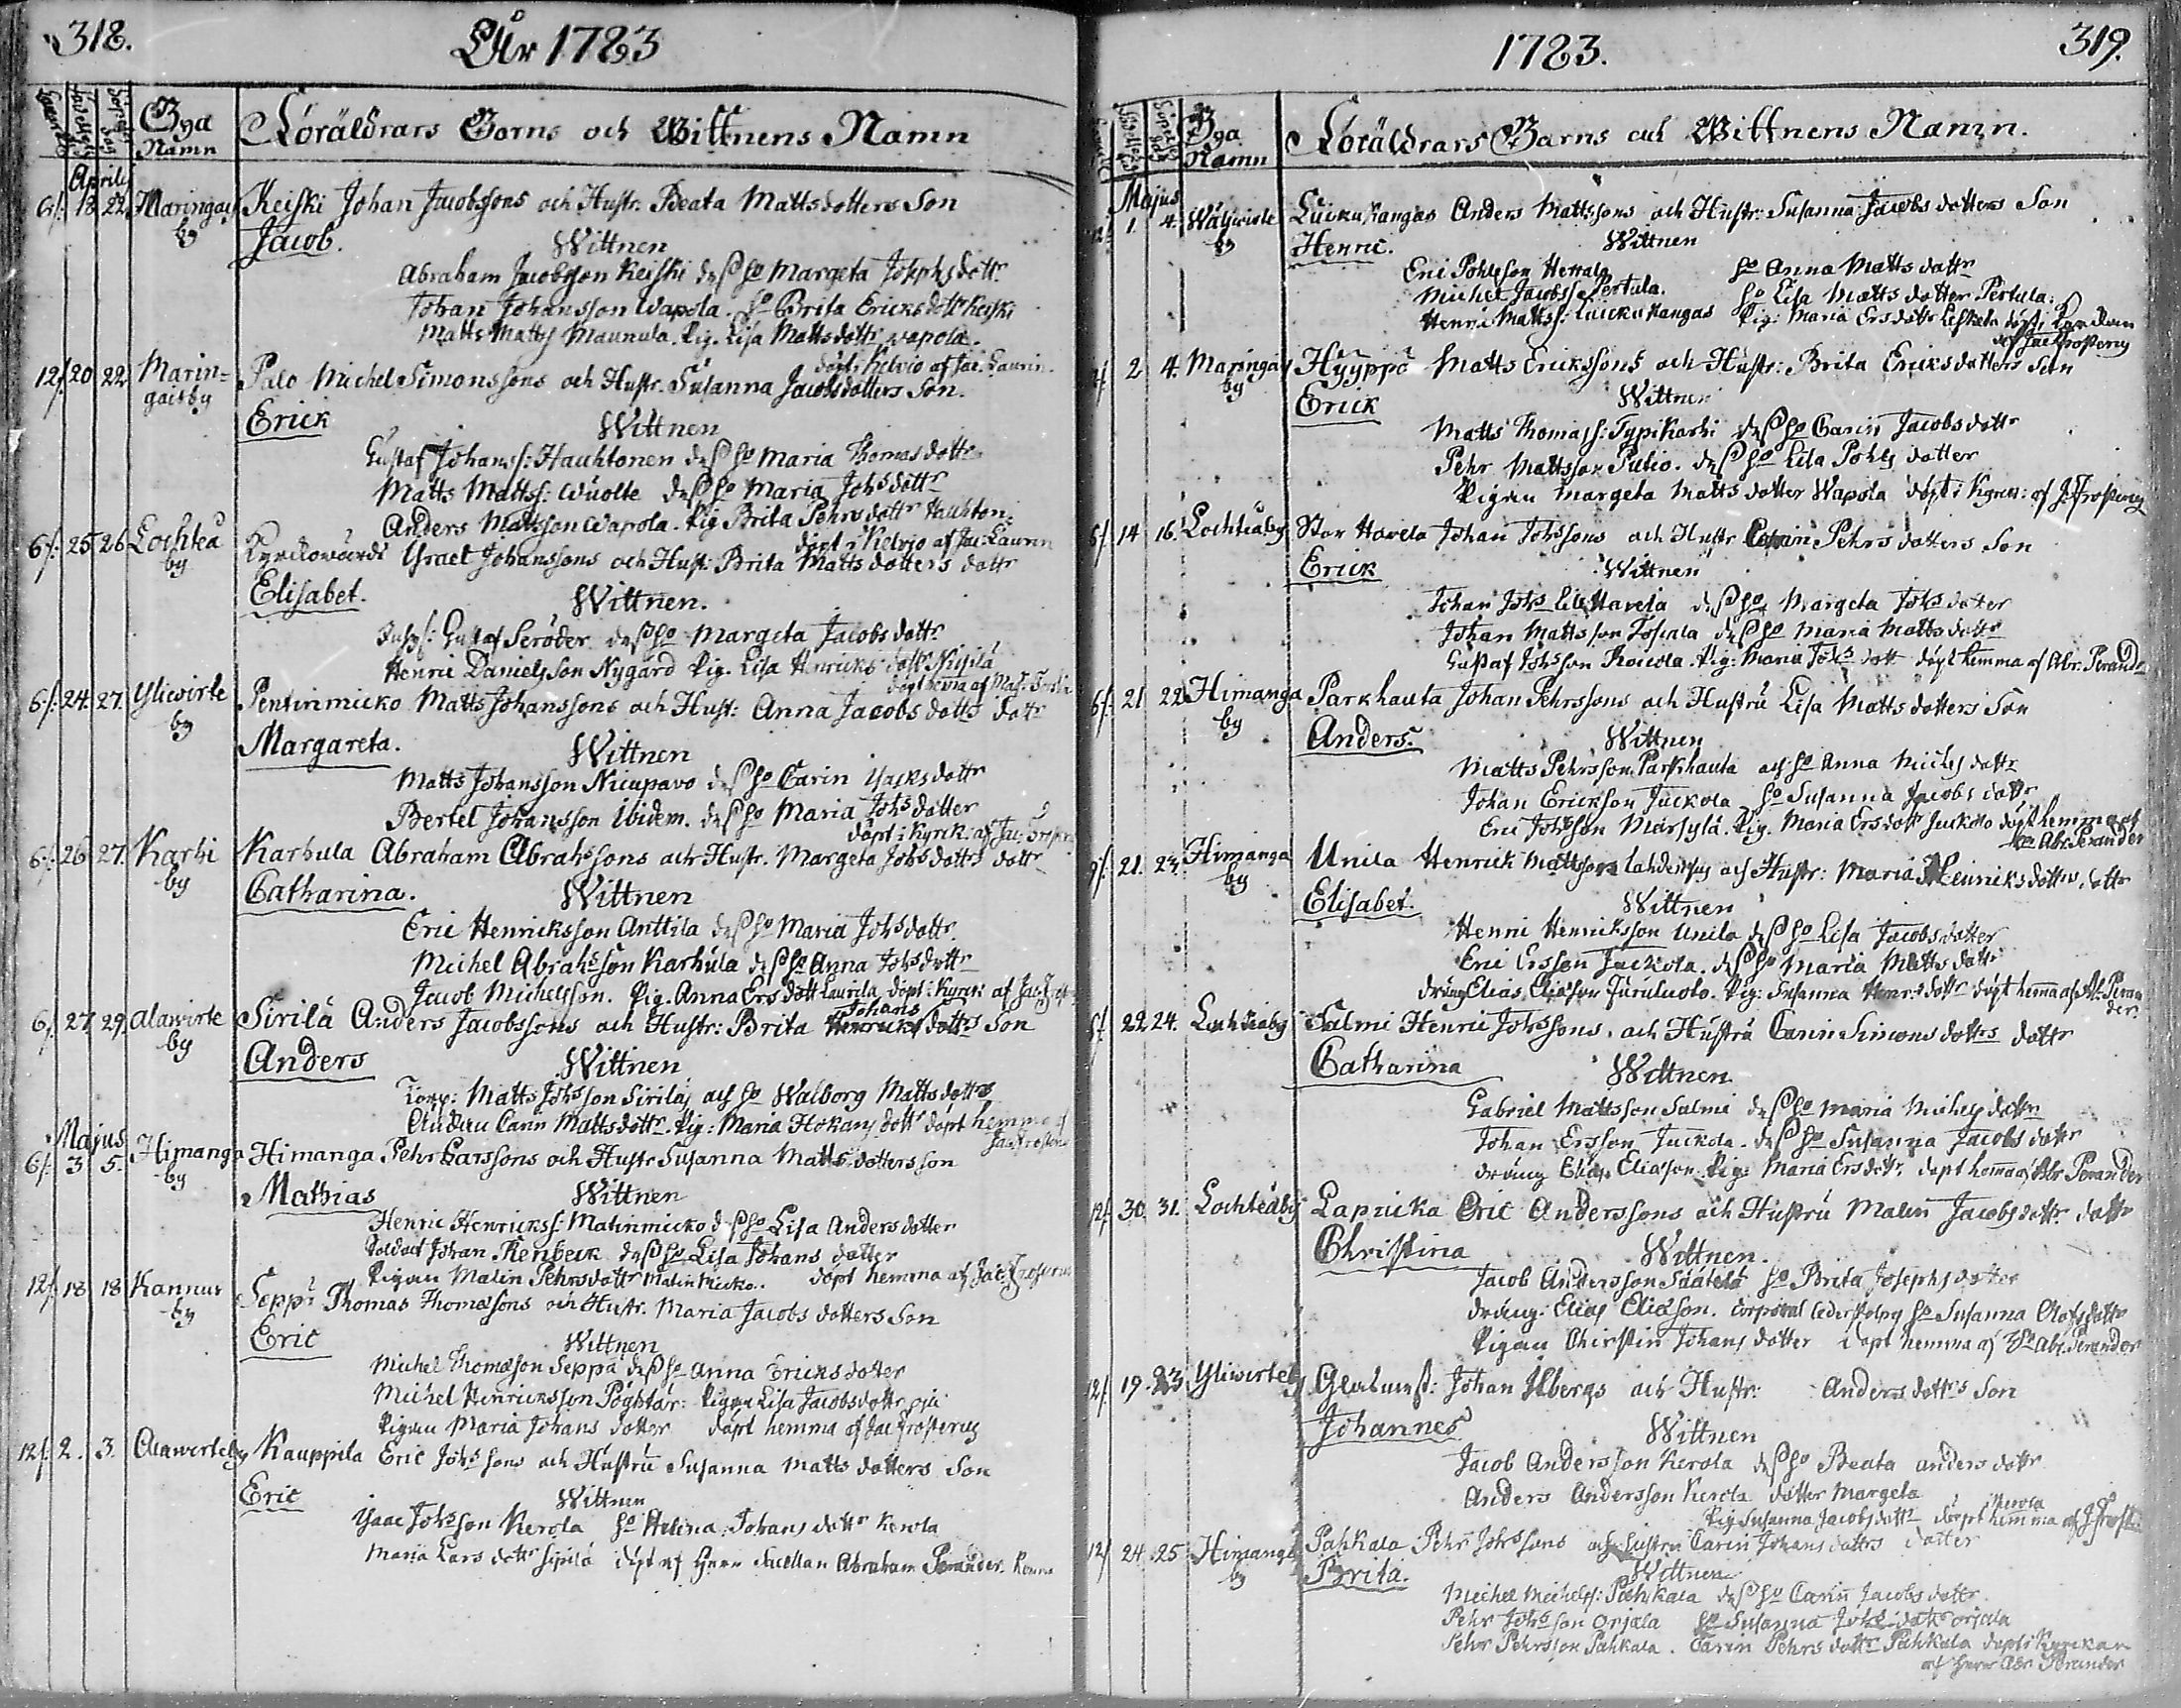 318.
Åhr 1783
Bya Namn
Föräldrars Barns och Wittnens Namn
Aprilis
6/: 18 22 Maringais by Keiski Johan Jacobssons och Hustr. Beata Mattsdotters Son
Jacob.
Wittnen
Abraham Jacobsson Keiski dess ho Margeta Josephs dottr
Johan Johansson Wapola. ho Brita Ericks dottr Keiski
Matts Matts Maunula. Pig. Lisa Matts dottr wapola.
döpt i Kelvio af Jac. Laurin.
12/ 20 22 Marin=gais by Palo Michel Simonssons och Hustr. Susanna Jacobsdotters Son.
Erick
Wittnen
Gustaf Johanss: Hauhtonen dess ho Maria Thomas dottr
Matts Mattss: Wuolte dess ho Maria Johs dottr
Anders Matsson Wapola. Pig Brita Pehrs dottr Hauhton:
döpt i Kelvio af Jac: Laurin
6/: 25 26 Lochteå by Kyrckowärds Ysrael Johanssons och Hust: Brita Matts dotters dottr
Elisabet.
Wittnen.
Gustaf Seröder dess ho Margeta Jacobs dottr
Henric Danielsson Nygård Pig. Lisa Henricks dottr
döpt hema af
6/: 24. 27. Yliwirte by Pentinmicko Matts Johanssons och Hust: Anna Jacobs dottrs dottr
Margareta.
Wittnen
Matts Johansson Nicupavo dess ho Carin Isacks dottr
Bertel Johansson ibidem. dess ho Maria Johs dotter
döpt i Kyrck: af Jac:
6/: 26 27. Karhi by Karhula Abraham Abrahssons och Hustr. Margeta Johs dottrs dottr
Catharina.
Wittnen
Eric Henricksson Anttila dess ho Maria Johs dottr
Michel Abrahsson Karhula dess ho Anna Johs dottr
Jacob Michelsson. Pig. Anna Ers dott Laurila döpt i Kyrck: af Jac
6/ 27 29. Alawirte by Sirilä Anders Jacobssons och Hustr: Brita Johans dottrs Son
Anders
Wittnen
Torp: Matts Johsson Sirilä och ho Walborg Matts dottr
Carin Matts dottr. Pig: Maria Hokans dottr döpt hemma af
Jac Frosterus
Majus
6/: 3 5. Himanga by Himanga Pehr Larssons och Hustr Susanna Matts dotters son
Mathias
Wittnen
Henric Henrickss: Matinmicko dess ho Lisa Anders dotter
Soldat Johan Renbeck dess ho Lisa Johans dotter
Pigan Malin Pehrs dottr Malin Micko. döpt hemma af Jac Frosterus
12/ 18 18 Kannus by Seppä Thomas Thomæsons och Hustr. Maria Jacobs dotters Son
Eric
Wittnen
Michel Thomæson Seppä dess ho Anna Ericks dotter
Michel Henricksson Pöghtär: Pigan Lisa Jacobs dottr
Pigan Maria Johans dotter döpt hemma af Jac Frosterus
12/ 2. 3. Alawirteby Kauppila Eric Johs sons och Hustru Susanna Matts dotters Son
Eric
Wittnen
Ysaac Johsson Kerola ho Helena Johans dottr Kerola
Maria Lars dottr Sipilä döpt af Herr Sacellan Abraham Perander.
1783.
319.
Bya Namn
Föräldrars Barns och Wittnens Namn.
Majus
1. 4. by Luckukangas Anders Mattssons och Hustr: Susanna Jacobs dotters Son
Henric.
Wittnen
Eric Pohlsson Herrala ho Anna Matts dottr
Michel Jacobss Pertula. ho Lisa Matts dotter Pertula.
Henric Mattss: Luckukangas Pig: Maria Ers dottr döpt i Kyrckan
af Jac Frosterus
2 4. Maringais by Hyyppä Matts Erickssons och Hustr: Brita Ericks dotters Son
Erick
Wittnen
Matts Thomass: Typikarhi dess ho Carin Jacobs dottr
Pehr Mattsson Putio. dess ho Lisa Pohls dotter
Pigan Margeta Matts dotter Wapola döpt i Kyrck: af J. Frosterus
6/ 14 16. Lochteåby Stor Havela Johan Johssons och Hustr Carin Pehrs dotters Son
Erick
Wittnen
Johan Johs Lill Havela dess ho Margeta Johs dotter
Johan Mattsson Toskala dess ho Maria Matts dottr
Gustaf Johsson Pig: Maria Johs dott döpt hemma af Abr. Perander
6/: 21 22 Himanga by Parkhauta Johan Pehrssons och Hustru Lisa Matts dotters Son
Anders.
Wittnen
Matts Pehrsson Parkhauta och ho Anna Michs dottr
Johan Erickson Juckola ho Susanna Jacobs dottr
Eric Johsson Märsylä. Pig. Maria Ers dottr Juckola döpt hemma af
Abr. Perander
9/: 21. 23. Himanga by Unila Henrick Mattssons och Hustr: Maria Henricks dottrs dottr
Elisabet.
Wittnen
Henric Henricksson Unila dess ho Lisa Jacobs dotter
Eric Ersson Juckola. dess ho Maria Matts dottr
dräng Elias Eliæson Juruluoto. Pig: Susanna Henrs dottr döpt hemma af Ab: Peran
der.
6/ 22 24. Lochteåby Salmi Henric Johssons. och Hustru Carin Simons dottrs dottr
Catharina
Wittnen
Gabriel Mattsson Salmi dess ho Maria Michels dottr
Johan Ersson Juckola. dess ho Susanna Jacobs dottr
dräng Elias Eliæson. Pig: Maria Ers dottr. döpt hemma af Abr Perander
12/ 30. 31. Lochteåby Lapricka Eric Anderssons och Hustru Malin Jacobs dottr dottr
Christina
Wittnen.
Jacob Andersson Säätelä ho Brita Josephs dotter
dräng: Elias Eliæson. Corporal Cederstolps ho Susanna Olofs dottr
Pigan Christin Johans dotter döpt hemma af Abr. Perander
12/. 19. 23. Yliwirteby Johan Ilbergs och Hustr: Anders dottrs Son
Johannes
Wittnen
Jacob Andersson Kerola dess ho Beata anders dottr
Anders Andersson Kerola dotter Margeta Kerola
Pig Susanna Jacobs dottr döpt hemma af J Frost:
12/ 24. 25 Himanga by Pahkala Pehr Johssons och Hustru Carin Johans dottrs dotter
Brita.
Wittnen
Michel Michelss: Pahkala dess ho Carin Jacobs dottr
Pehr Johsson Orjala ho Susanna Johs dottr Orjala
Pehr Pehrsson Pahkala. Carin Pehrs dottr Pahkala döpt i Kyrckan
af Herr Abr Perander